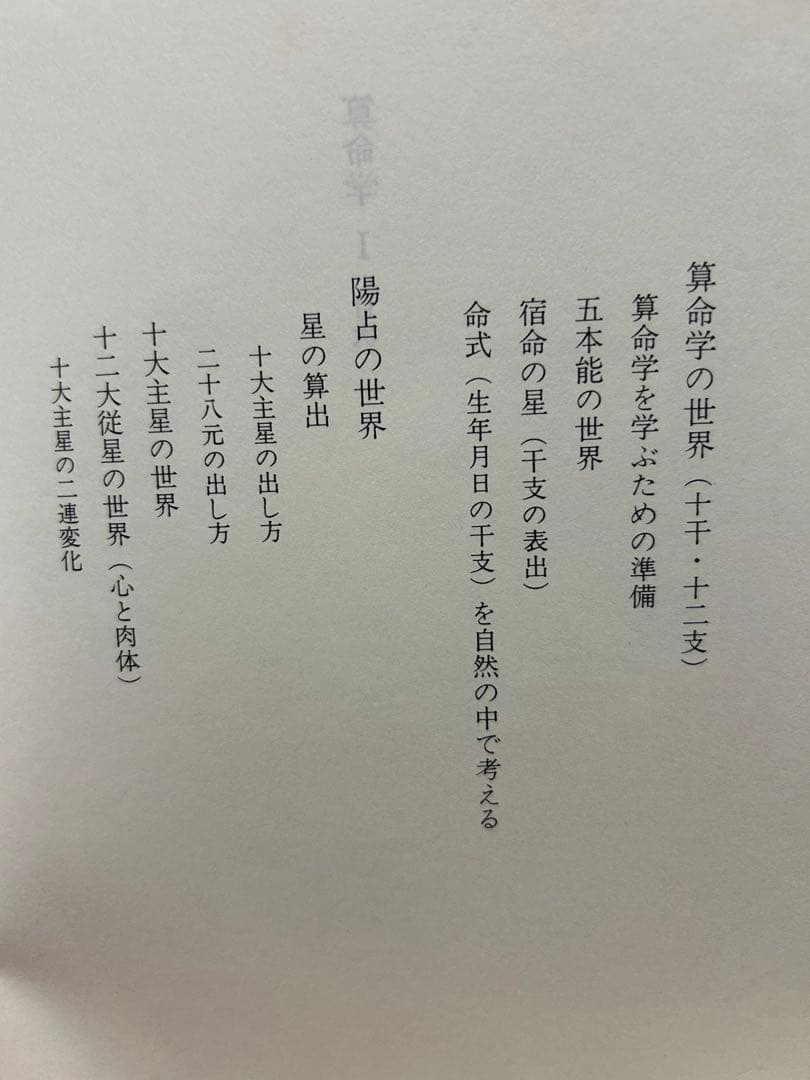 算命学の世界（十干・十二支）
算命学を学ぶための準備
五本能の世界
宿命の星（干支の表出）
命式（生年月日の干支）を自然の中で考える
陽占の世界
星の算出
十大主星の出し方
二十八元の出し方
十大主星の世界
十二大従星の世界（心と肉体）
十大主星の二連変化
算命学 I